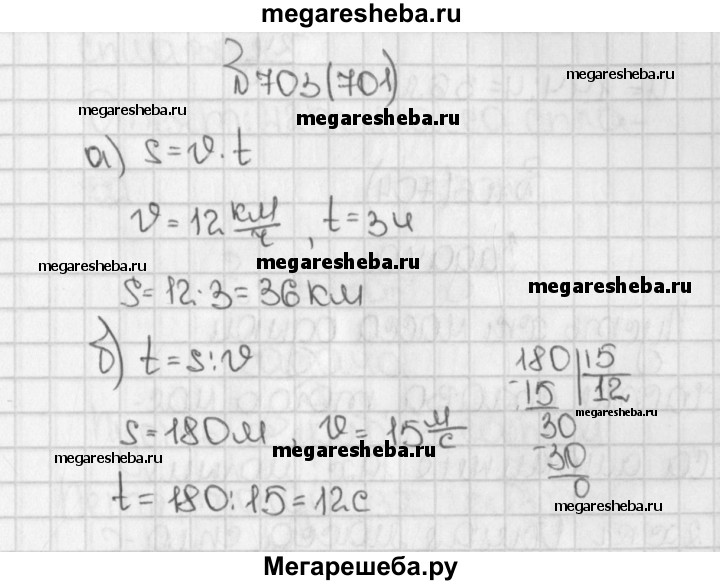 megaresheba.ru
№703(701)
megaresheba.ru
megaresheba.ru
megaresheba.ru
а) s=v·t
v=12 км/ч, t=3ч
megaresheba.ru
megaresheba.ru
megaresheba.ru
s=12·3=36км
б) t=s:v
180|15
-15 |12
megaresheba.ru
s=180м, v=15 м/с
30
megaresheba.ru
-30
megaresheba.ru
0
t=180:15=12с
megaresheba.ru
Мегарешеба.ру